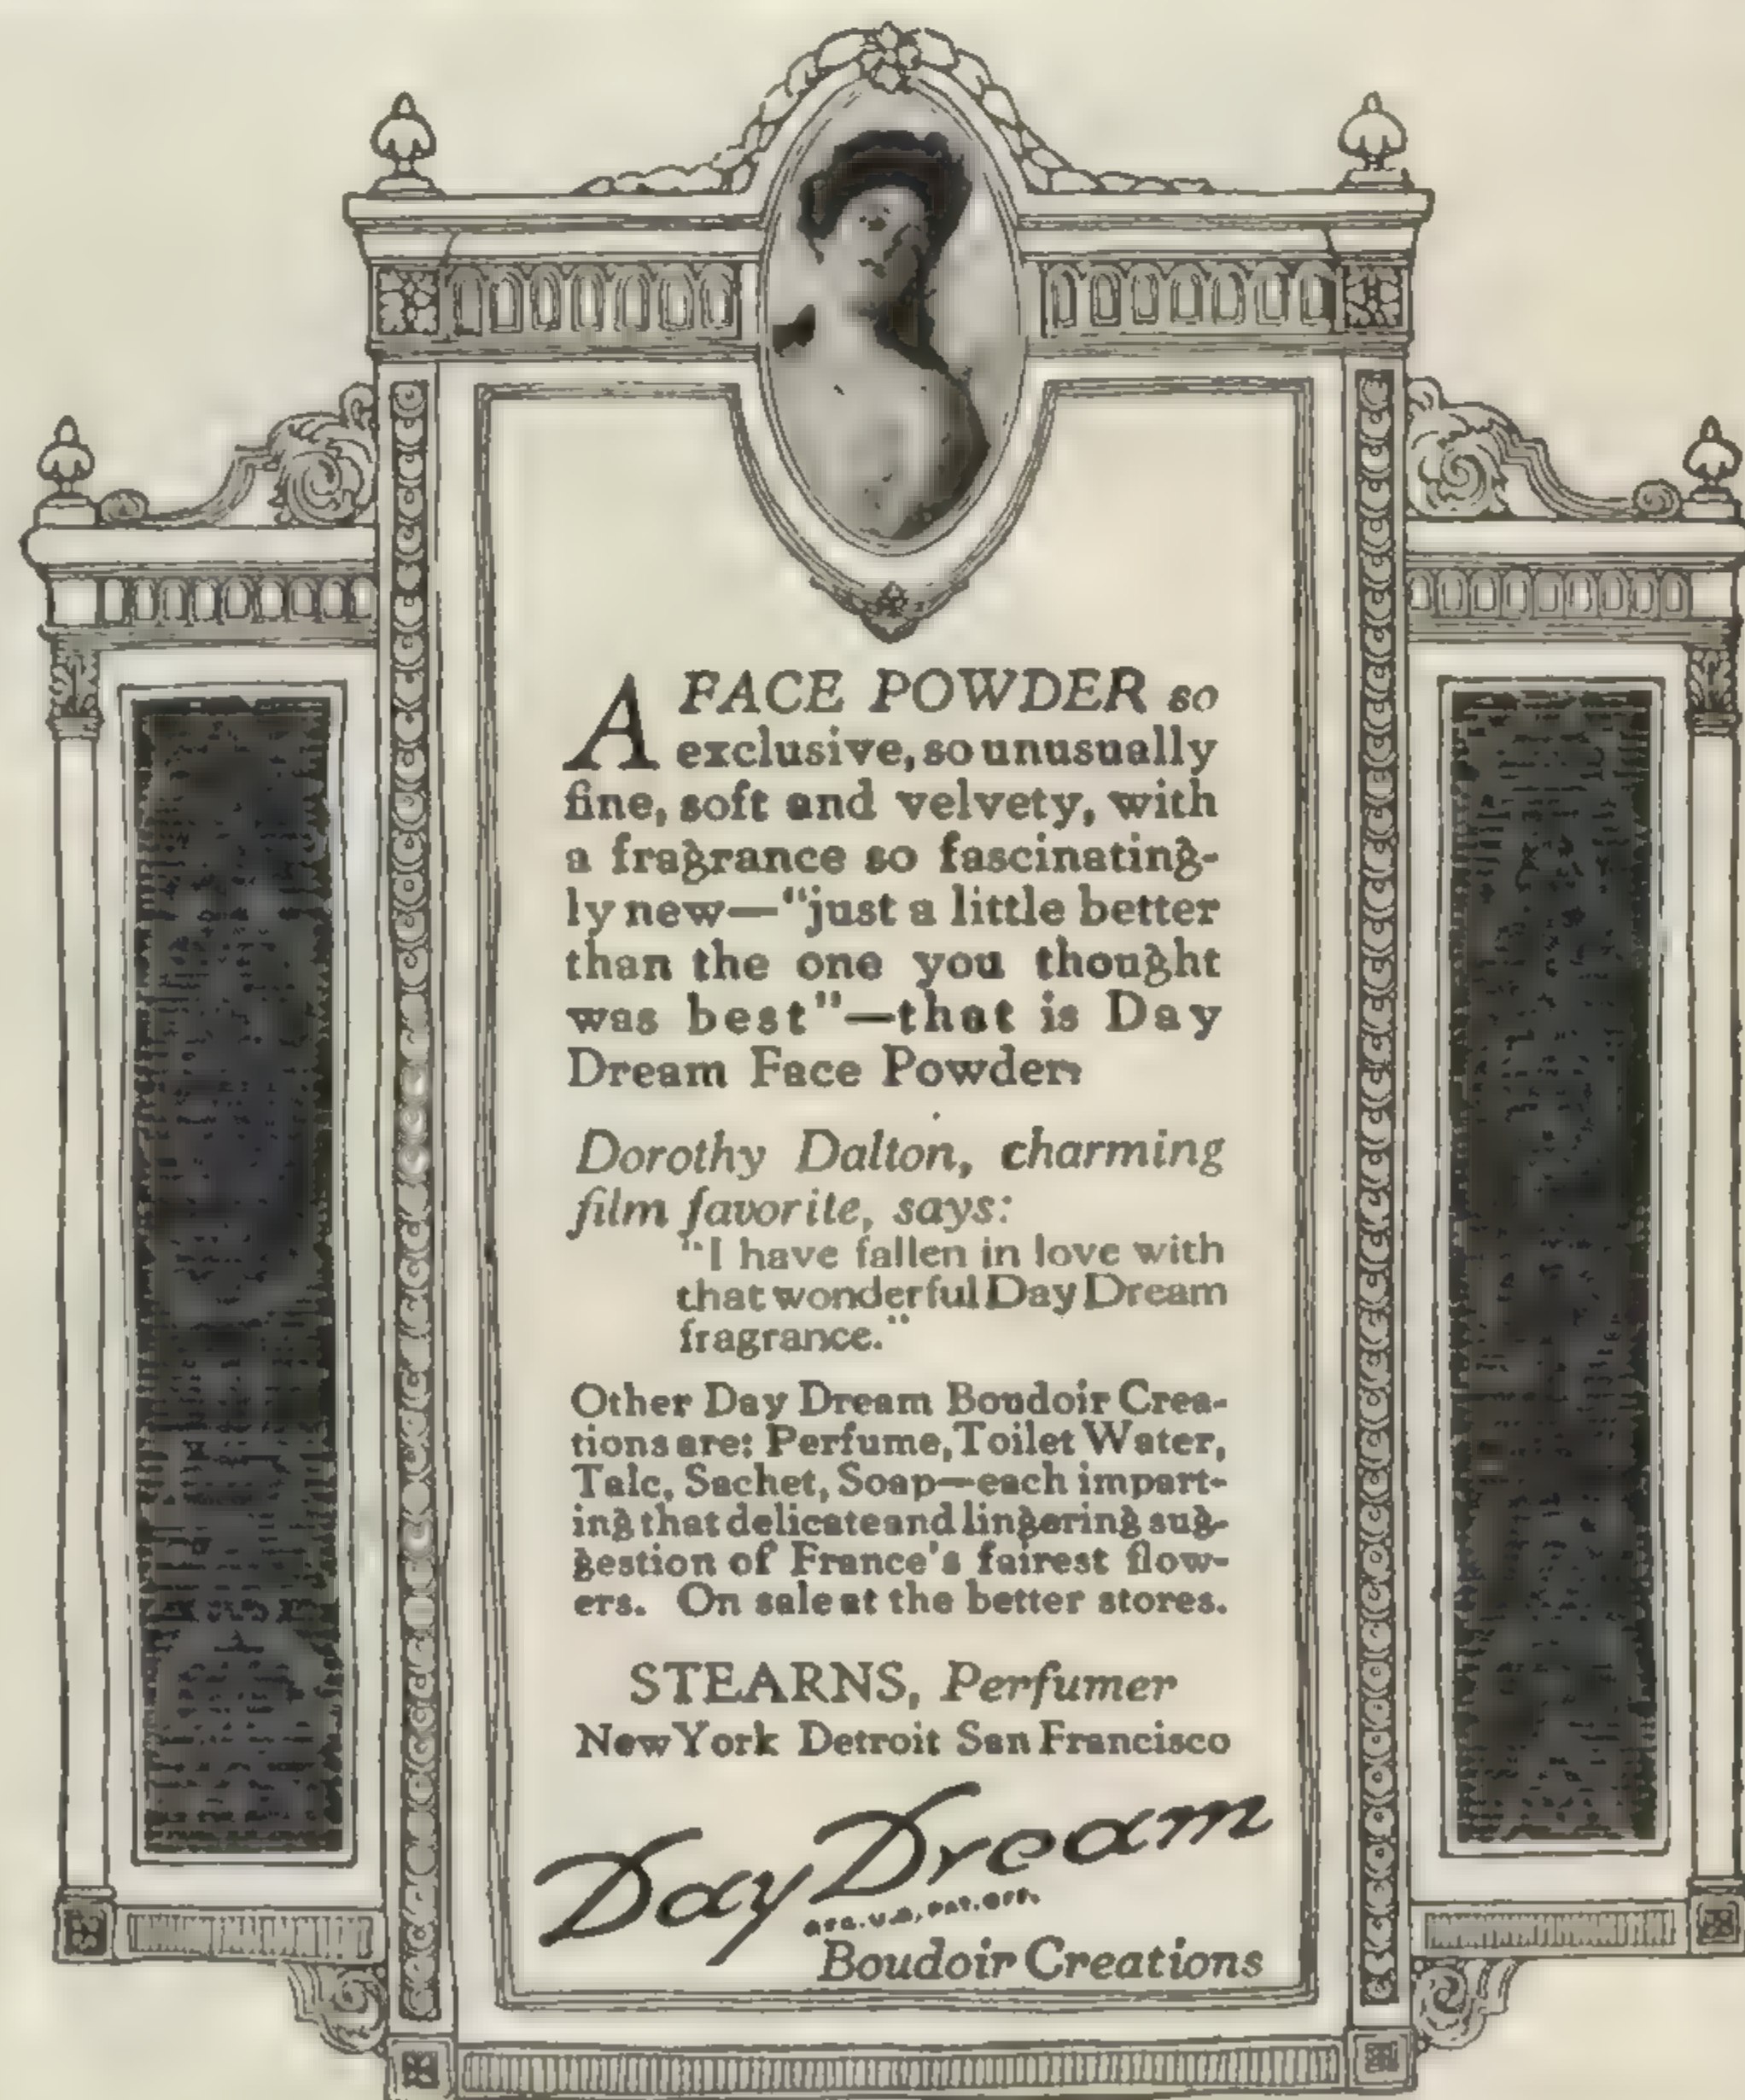 A FACE POWDER so
exclusive, so unusually
fine, soft and velvety, with
a fragrance so fascinating-
ly new—"just a little better
than the one you thought
was best"—that is Day
Dream Face Powder.
Dorothy Dalton, charming
film favorite, says:
"I have fallen in love with
that wonderful Day Dream
fragrance."
Other Day Dream Boudoir Crea-
tions are: Perfume, Toilet Water,
Talc, Sachet, Soap—each impart-
ing that delicate and lingering sug-
gestion of France's fairest flow-
ers. On sale at the better stores.
STEARNS, Perfumer
New York Detroit San Francisco
Day Dream
REG. U.S. PAT. OFF.
Boudoir Creations